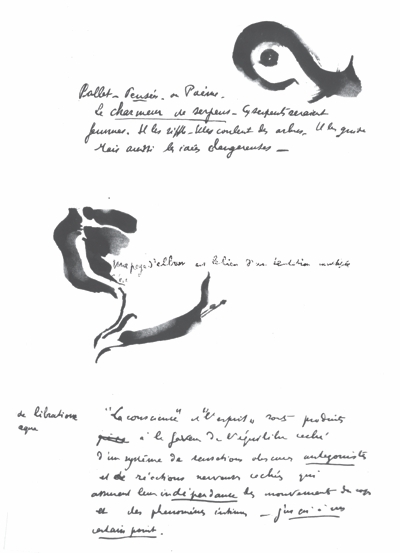 Ballet – Pensée – ou Poème.
Le charmeur de serpens – Ces serpents seraient
femmes. Il les siffle – Elles coulent des arbres. Il les
Mais aussi les idées dangereuses –
Une page d'album est le lieu d'une
de libratione
aquae
"La conscience" et "l'esprit" sont produits
à la faveur de l'équilibre caché
d'un système de sensations obscures antagonistes
et de réactions nerveuses cachées qui
assurent leur indépendance des mouvements du corps
et des phénomènes intimes – jusqu'à un
certain point.